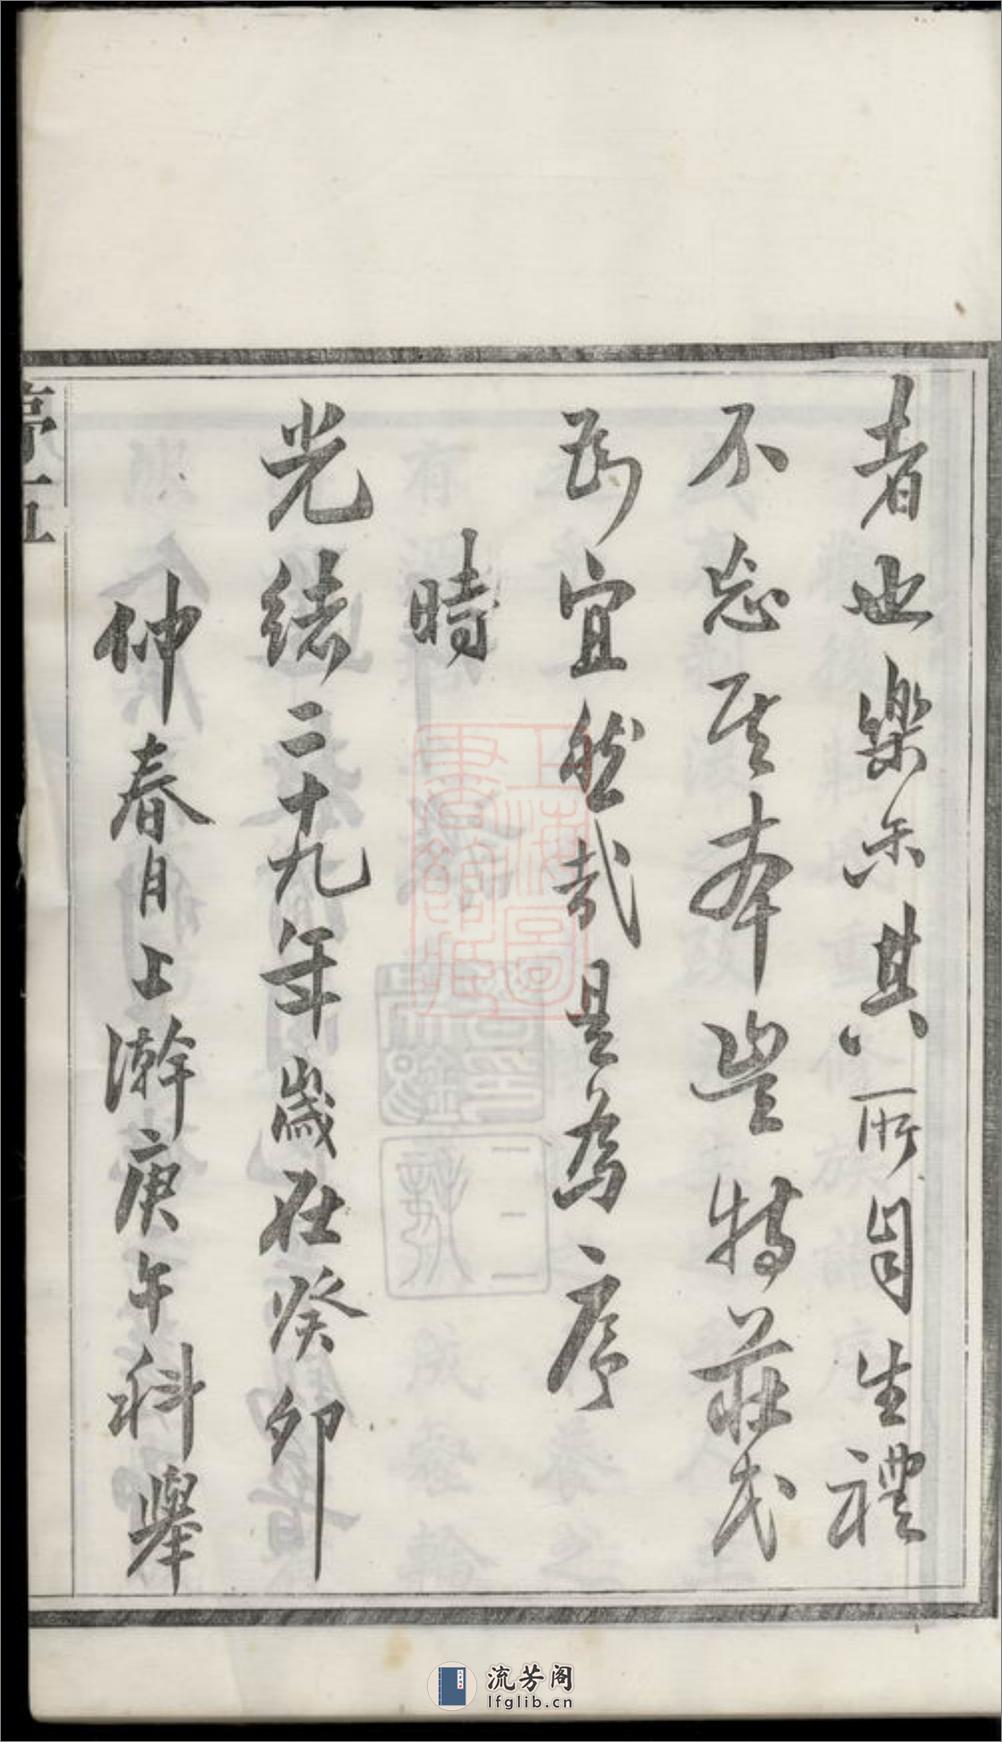 者也樂樂其所自生禮
不忘其本豈特莊氏
為宜然哉是為序
時
光緒二十九年歲在癸卯
仲春月上澣庚午科舉
上海圖
書館藏
流芳阁
lfglib.cn